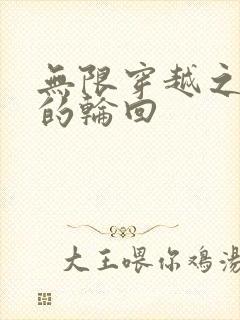 無限穿越之
的輪回
大王喂你鸡汤